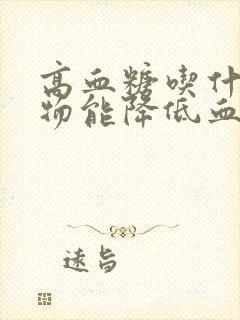 高血糖喫什
物能降低血
遠旨